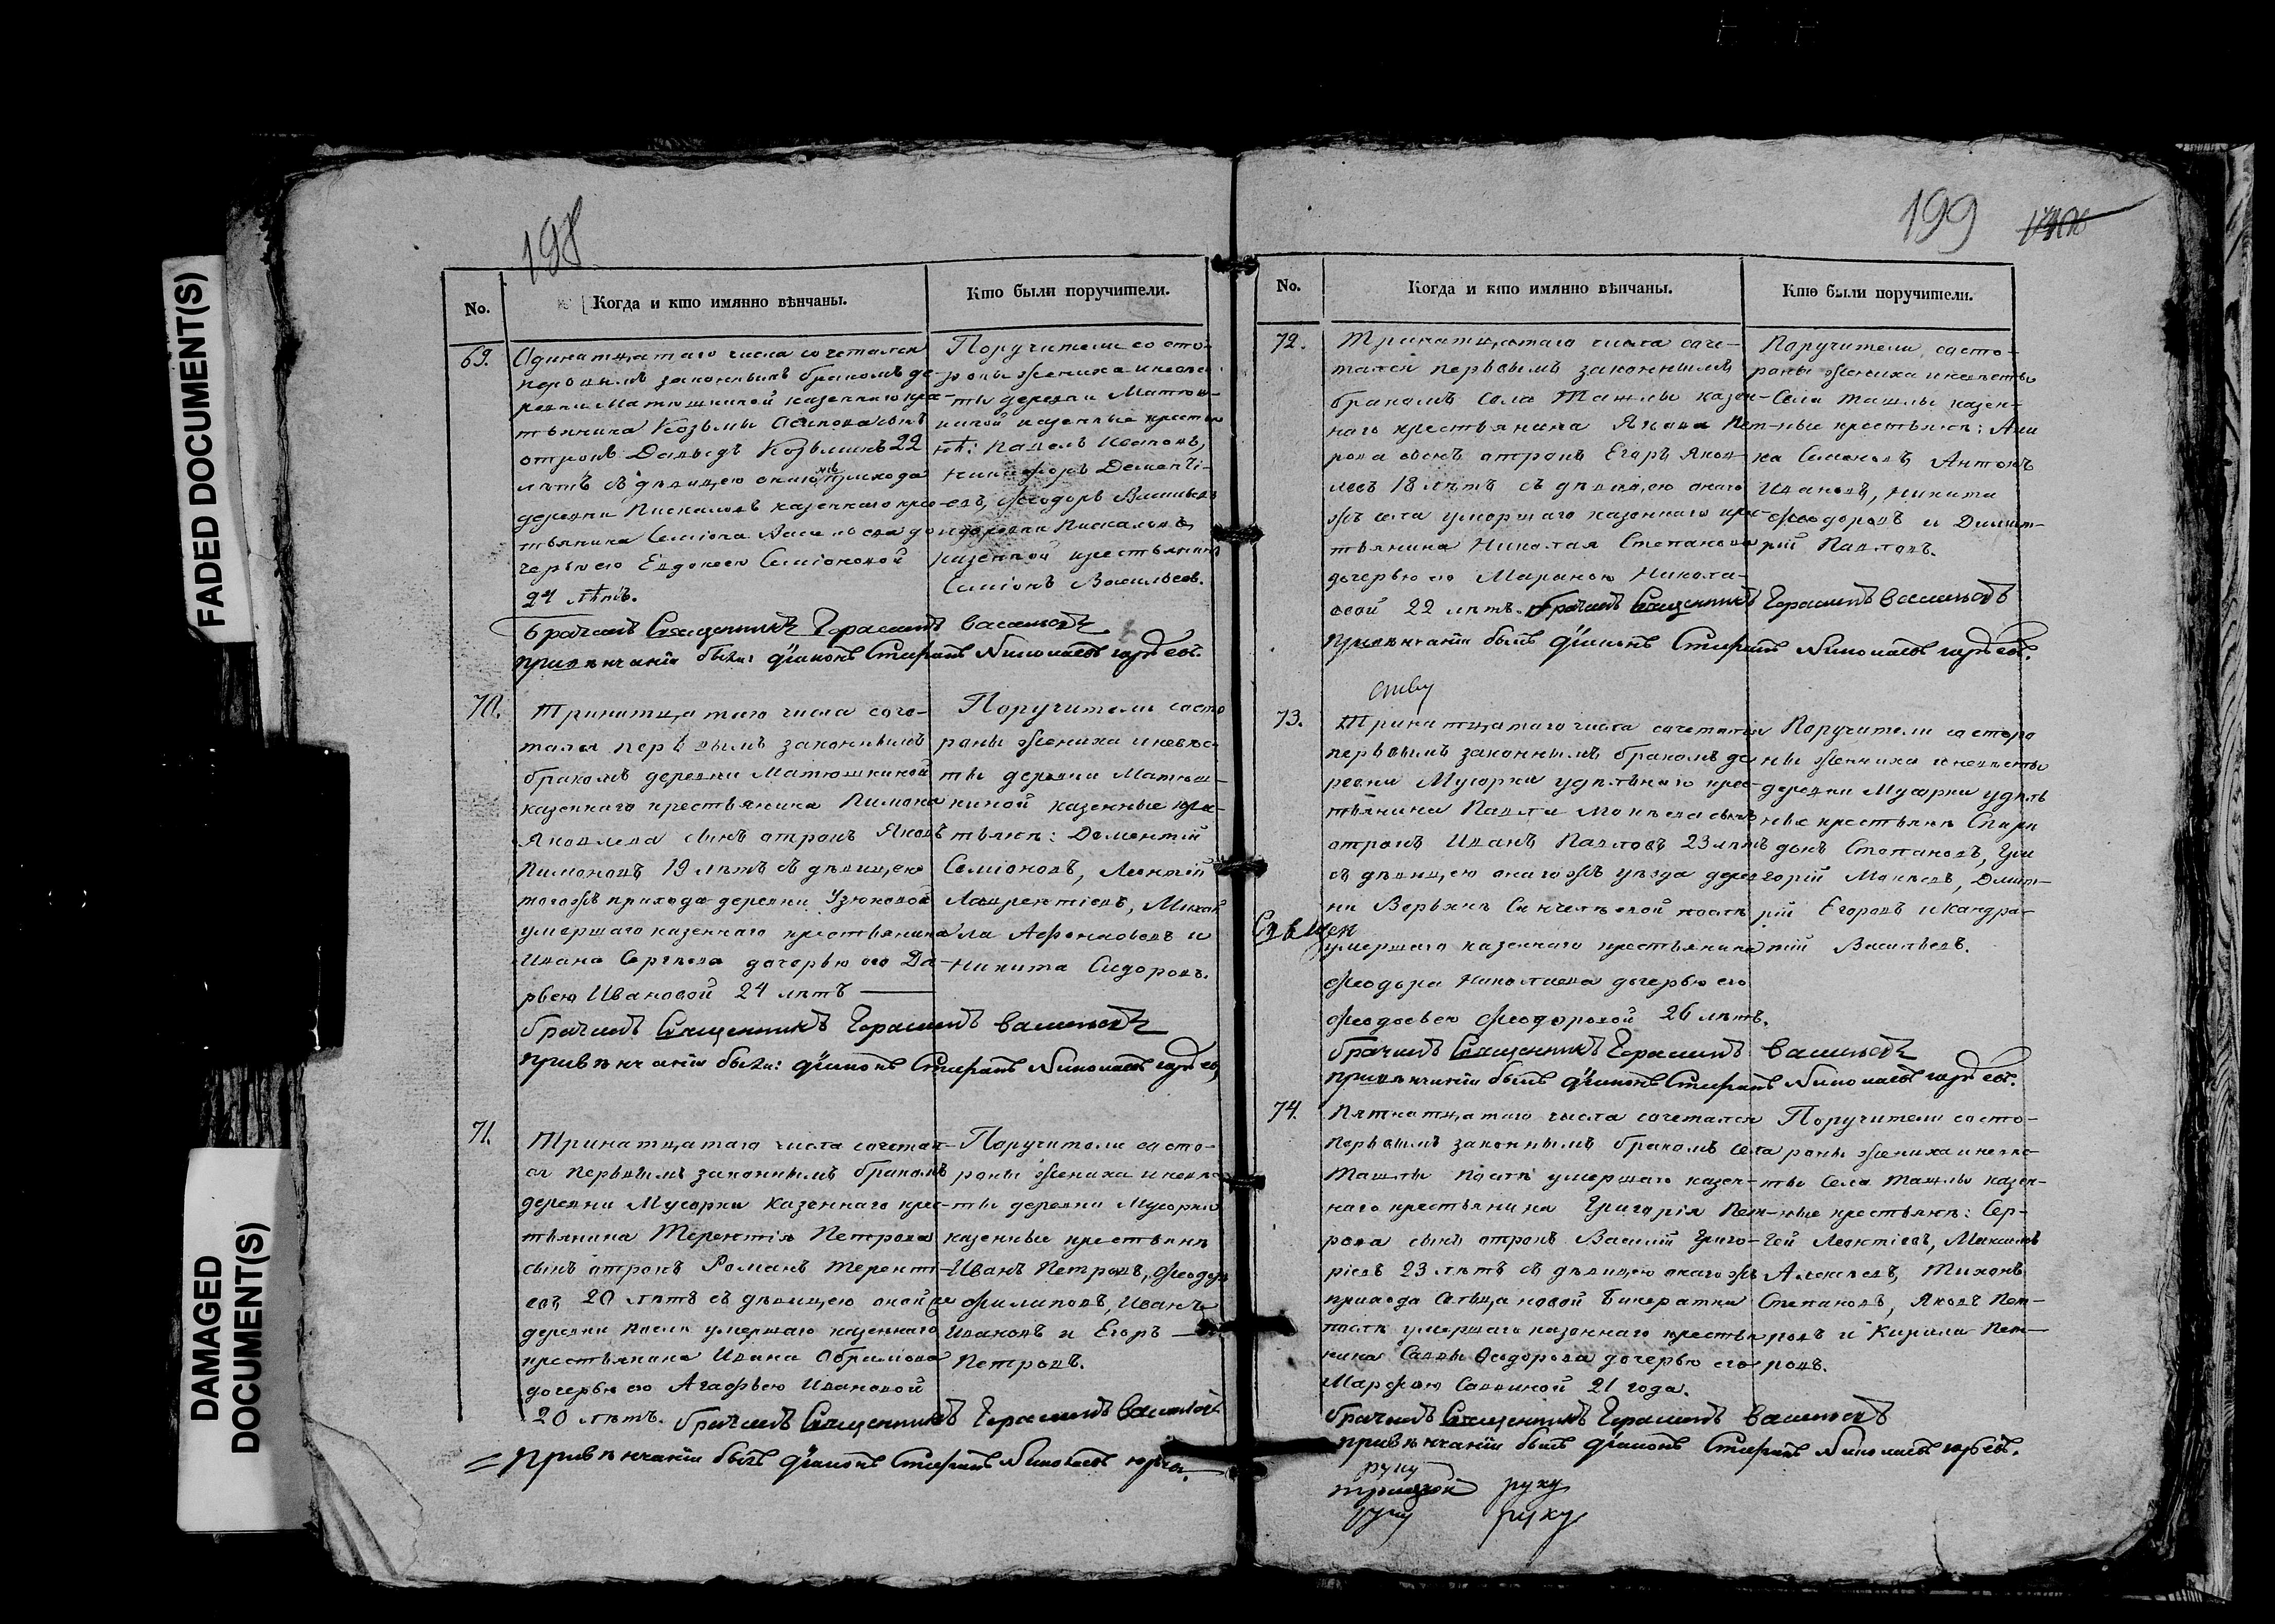 FADED DOCUMENT(S)
DAMAGED
DOCUMENT(S)
198
No.
Когда и кто имянно вѣнчаны.
Кто были поручители.
69.
Одинатцатаго числа сочетался
первымъ законнымъ бракомъ де-
ревни Матюшкиной казеннаго крес-
тьянина Козьмы Осипова сынъ
отрокъ Давыдъ Козьминъ 22
лѣтъ съ дѣвицею онаго прихода
деревни Пискаловъ казеннаго крес-
тьянина Семiона Васильева до
черью его Евдокеею Семiоновой
24 лѣтъ.
Поручители со сто-
роны жениха и невес-
ты деревни Матюш-
киной казенные кресть
нѣ: Павелъ Ивановъ,
Никифоръ Дементi-
евъ, Ѳеодоръ Васильевъ
и деревни Пискаловъ
казенной крестьянинъ
Семiонъ Васильевъ.
бракъ пѣлъ Священникъ Герасимъ Васильевъ
при вѣнчанiи были: дiаконъ Стефанъ Николаевъ
70.
Тринатцатаго числа соче-
тался первымъ законнымъ
бракомъ деревни Матюшкиной
казеннаго крестьянина Пимона
Яковлева сынъ отрокъ Яковъ
Пимоновъ 19 лѣтъ съ дѣвицею
тогожъ прихода деревни Узюковой
умершаго казеннаго крестьянина
Ивана Сергѣева дочерью его Да-
рьею Ивановой 24 лѣтъ
Поручители со сто
роны жениха и невѣс-
ты деревни Матюш-
киной казенные крес-
тьянѣ: Дементiй
Семiоновъ, Леонтiй
Лаврентiевъ, Михай
ла Афонасьевъ и
Никита Сидоровъ.
Священникъ Герасимъ Васильевъ
при вѣнчанiи были: дiаконъ Стефанъ Николаевъ
71.
Тринатцатаго числа сочетал-
ся первымъ законнымъ бракомъ
деревни Мусорки казеннаго крес-
тьянина Терентiя Петрова
сынъ отрокъ Романъ Терентi-
евъ 20 лѣтъ съ дѣвицею оной же
деревни послѣ умершаго казеннаго
крестьянина Ивана Обрамова
дочерью его Агафьею Ивановой
20 лѣтъ. Священникъ Герасимъ Васильевъ
Поручители со сто-
роны жениха и невѣс
ты деревни Мусорки
казенные крестьянѣ
Иванъ Петровъ, Ѳеодоръ
Филиповъ, Иванъ
Ивановъ и Егоръ
Петровъ.
при вѣнчанiи былъ дiаконъ Стефанъ Николаевъ
199
No.
Когда и кто имянно вѣнчаны.
Кто были поручители.
72.
Тринатцатаго числа соче-
тался первымъ законнымъ
бракомъ села Ташлы казен-
наго крестьянина Якова Пет-
рова сынъ отрокъ Егоръ Яков-
левъ 18 лѣтъ съ дѣвицею онаго
жъ села умершаго казеннаго крес-
тьянина Николая Степанова
дочерью его Мариною Никола-
евой 22 лѣтъ. Священникъ Герасимъ Васильевъ
Поручители со сто-
роны жениха и невѣсты
села Ташлы казен-
ные крестьянѣ: Ани
ка Симоновъ, Антонъ
Ивановъ, Никита
Ѳеодоровъ и Димит-
рiй Павловъ.
при вѣнчанiи былъ дiаконъ Стефанъ Николаевъ
73.
Тринатцатаго числа сочетался
первымъ законнымъ бракомъ де
ревни Мусорки удѣльнаго крес-
тьянина Павла Мокѣева сынъ
отрокъ Иванъ Павловъ 23 лѣтъ
съ дѣвицею онагожъ уѣзда дерев
ни Верьхнѣ Санчелѣевой послѣ
умершаго казеннаго крестьянина
Ѳеодора Николаева дочерью его
Ѳеодосьею Ѳеодоровой 26 лѣтъ.
Поручители со сторо
ны жениха и невѣсты
деревни Мусорки удѣль
ные крестьянѣ Спири
донъ Степановъ, Гри
горiй Мокѣевъ, Димит-
рiй Егоровъ и Кандра-
тiй Васильевъ.
Священникъ Герасимъ Васильевъ
при вѣнчанiи былъ дiаконъ Стефанъ Николаевъ
74.
Пятнатцатаго числа сочетался
первымъ законнымъ бракомъ села
Ташлы послѣ умершаго казен-
наго крестьянина Григорiя Пет-
рова сынъ отрокъ Василiй Григо-
рiевъ 23 лѣтъ съ дѣвицею онагожъ
прихода сельца новой Бинератки
послѣ умершаго казеннаго крестья
нина Саввы Ѳеодорова дочерью его
Марѳою Саввиной 21 года.
Поручители со сто-
роны жениха и невѣс-
ты села Ташлы казен-
ные крестьянѣ: Сер-
гей Леонтiевъ, Максимъ
Алексѣевъ, Тихонъ
Степановъ, Яковъ Пет-
ровъ и Кирила Пет-
ровъ.
Священникъ Герасимъ Васильевъ
при вѣнчанiи былъ дiаконъ Стефанъ Николаевъ
руку
руку
руку